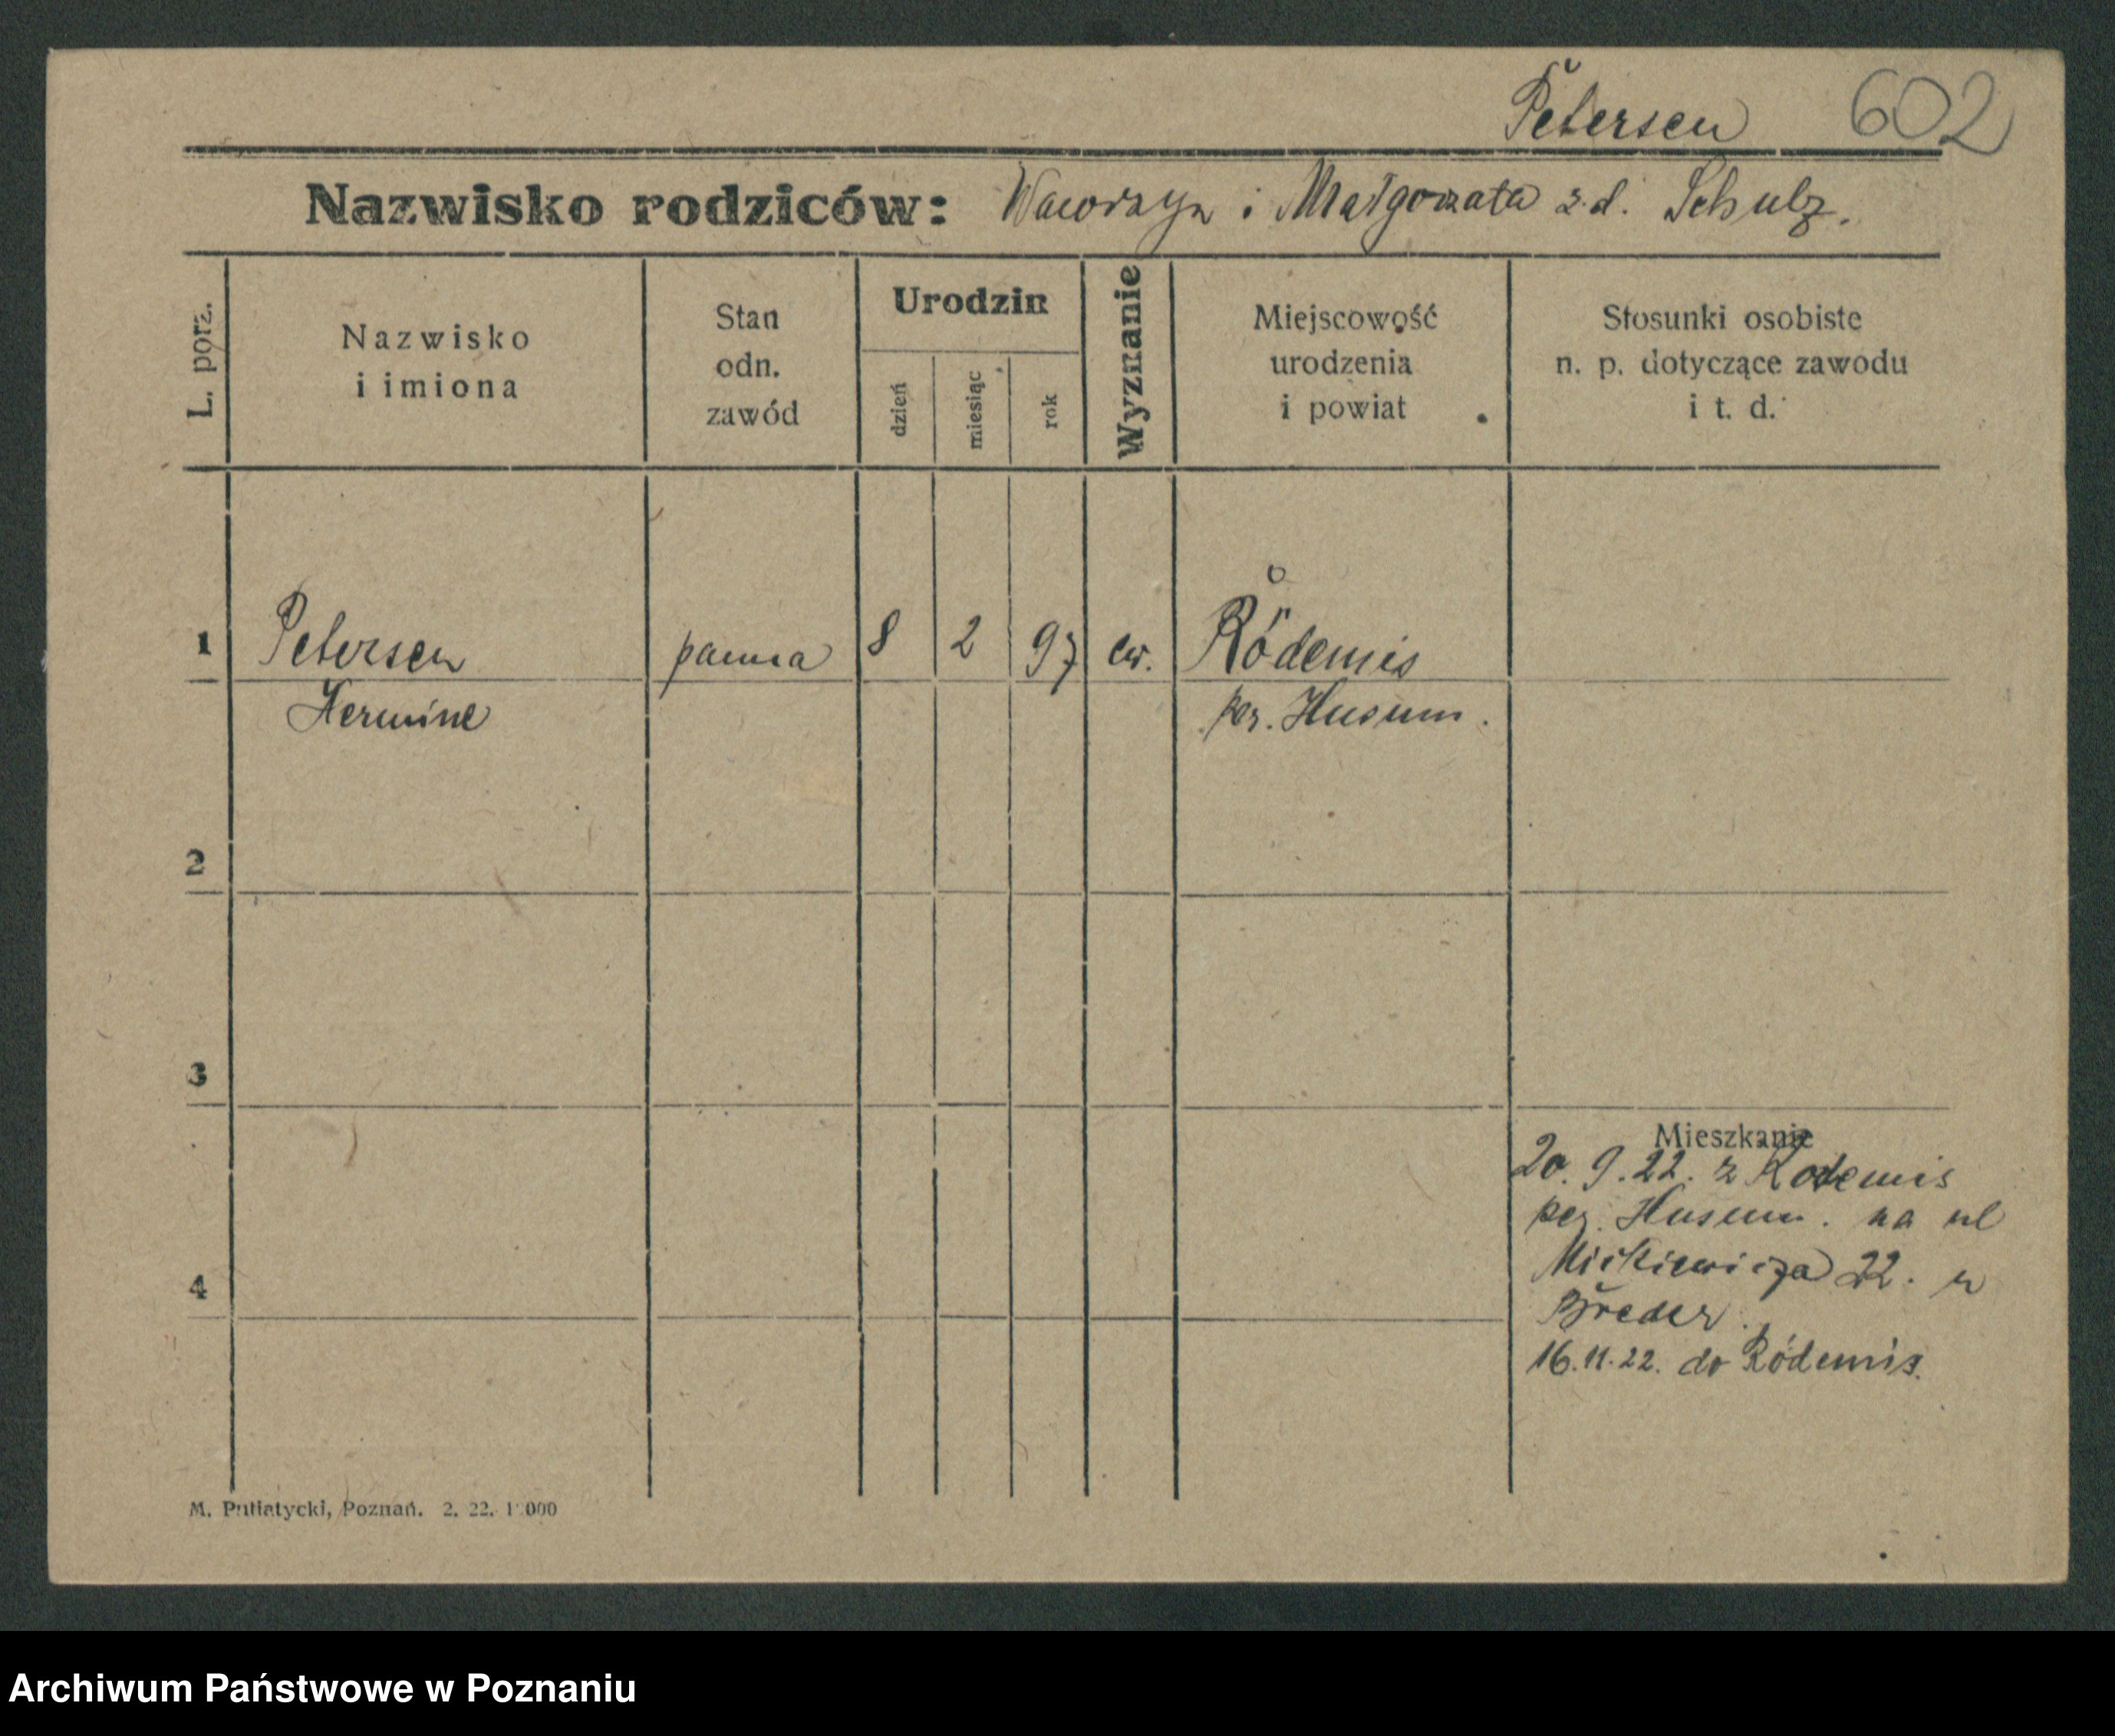 Petersen 602
Nazwisko rodziców: Wawrzyn i Małgorzata z.d. Schulz.
L. porz.
Nazwisko
i imiona
Stan
odn.
zawód
Urodzin
dzień
miesiąc
rok
Wyznanie
Miejscowość
urodzenia
i powiat
Stosunki osobiste
n. p. dotyczące zawodu
i t. d.
1 Petersen panna 8 2 97 ew. Rödemis
Hermine per. Husum.
2
3
4
Mieszkanie
20. 9. 22. z Rödemis
per. Husum. na ul
Mickiewicza 22. u
Breder.
16.11.22. do Ródemis.
M. Putiatycki, Poznań. 2. 22. 1 000
Archiwum Państwowe w Poznaniu